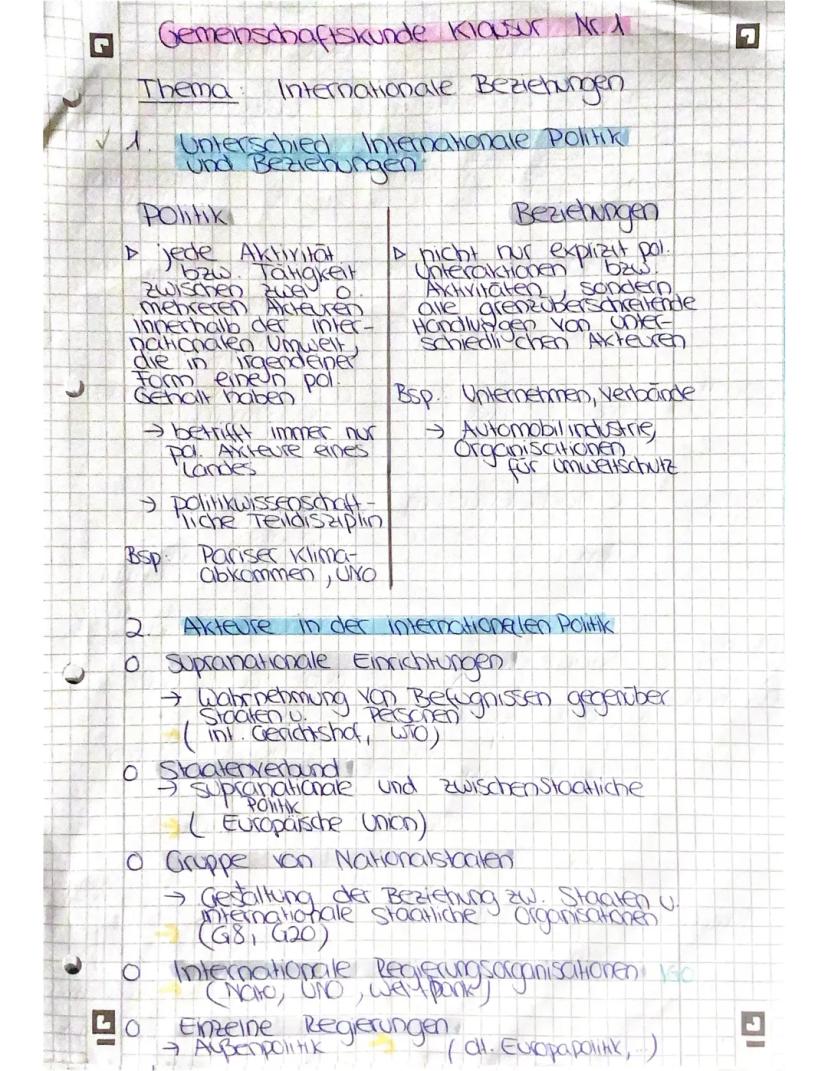 Gemeinschaftskunde Klausur Nr. 1
Thema: Internationale Beziehungen
✓ 1. Unterschied Internationale Politik
und Beziehungen
Politik
▷ jede Aktivität
bzw. Tätigkeit
zwischen zwei o.
mehreren Akteuren
innerhalb der inter-
nationalen Umwelt,
die in irgendeiner
Form einen pol.
Gehalt haben
→ betrifft immer nur
pol. Akteure eines
Landes
→ politikwissenschaft-
liche Teildisziplin
Bsp: Pariser Klima-
abkommen, UNO
Beziehungen
▷ nicht nur explizit pol.
Unteraktionen bzw.
Aktivitäten, sondern
alle grenzüberschreitende
Handlungen von unter-
schiedlichen Akteuren
Bsp. Unternehmen, Verbände
→ Automobilindustrie,
Organisationen
für Umweltschutz
2. Akteure in der internationalen Politik
O Supranationale Einrichtungen
→ Wahrnehmung von Befugnissen gegenüber
Staaten u. Personen
(int. Gerichtshof, WTO)
O Staatenverbund
→ supranationale und zwischenstaatliche
Politik
(Europäische Union)
O Gruppe von Nationalstaaten
→ Gestaltung der Beziehung zw. Staaten u.
internationale staatliche Organisationen
(G8, G20)
O Internationale Regierungsorganisationen IGO
(Nato, UNO, Weltbank)
O Einzelne Regierungen
→ Außenpolitik (dt. Europapolitik,...)